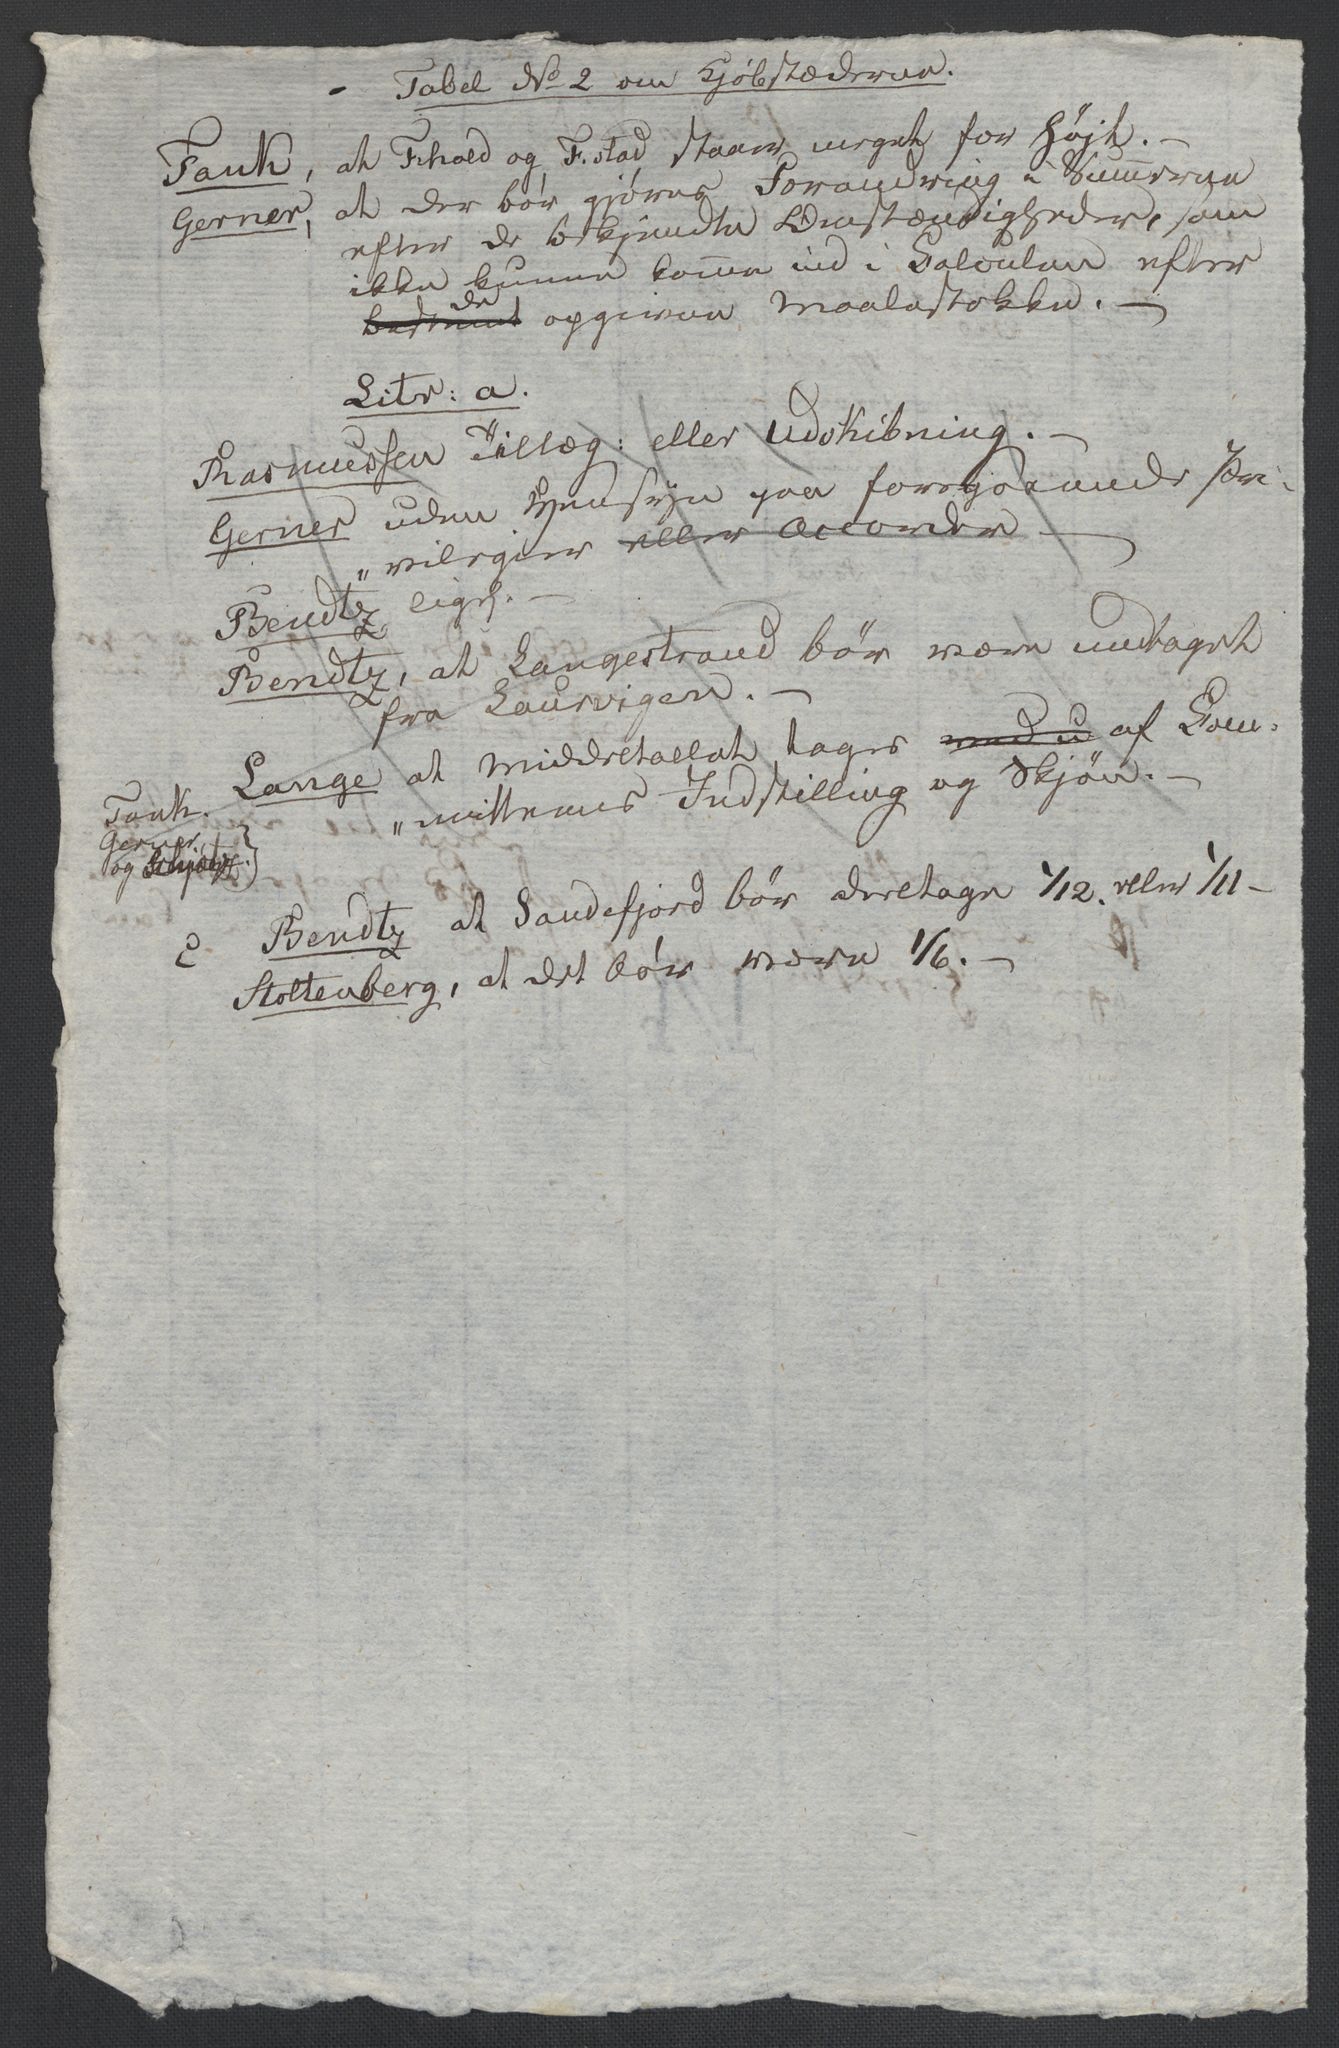 - Tabel No 2 om Kjöbstæderne.
Tank, at Frhald og F.stad staaer meget for højt. -
Gerner, at der bör gjöres Forandring i Summerne
efter de bekjendte Omstændigheder, som
ikke kunne kom̅e ind i Calculen efter
de
bestemt opgivne Maalestokke. -
Litr: a.
Rasmussen Tillæg: eller Udskibning. -
Gerner uden Hensyn paa foregaaende Pri-
"vilegier eller Accorder -
Bendtz ligs. -
Bendtz, at Langestrand bör være undtaget
fra Laurvigen. -
Lange at Middeltallet tages med u af Com-
"mitteens Indstilling og Skjön. -
Tank.
Gerner
og Schjötz.
c Bendtz at Sandefjord bör deeltage 1/12. eller 1/11 -
Stoltenberg, at det bör være 1/6. -